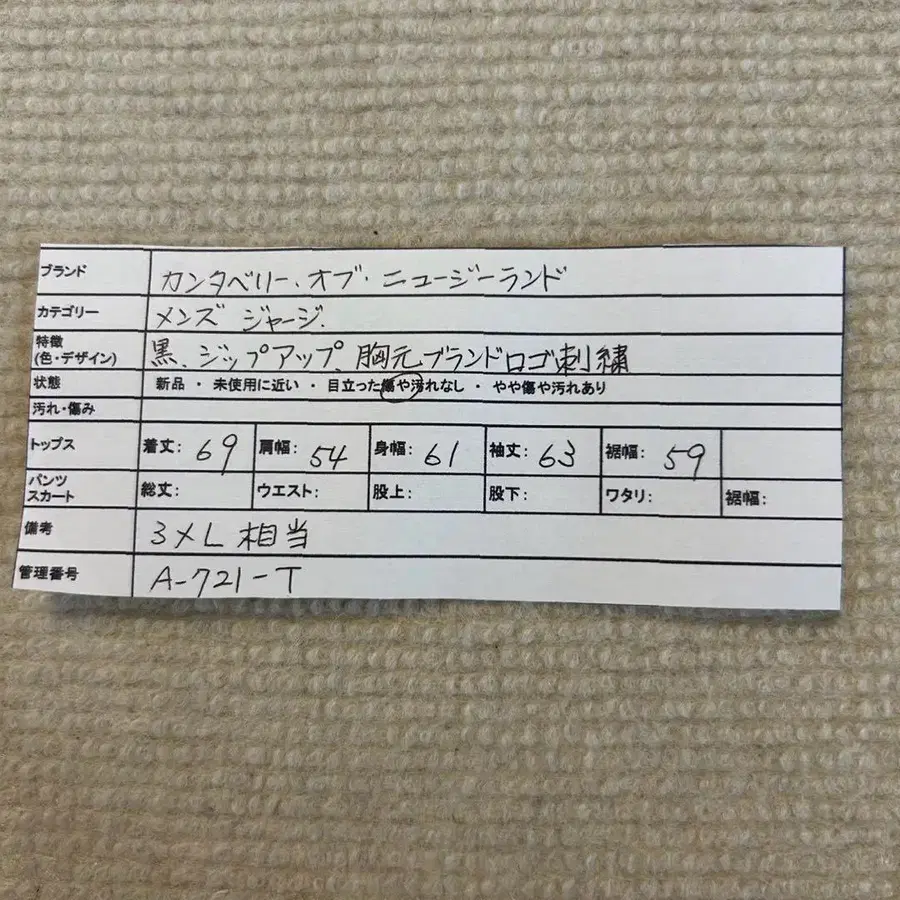 ブランド カンタベリー・オブ・ニュージーランド
カテゴリー メンズ ジャージ.
特徴
(色・デザイン) 黒、ジップアップ、胸元ブランドロゴ刺繍
状態 新品 ・ 未使用に近い ・ 目立った傷や汚れなし ・ やや傷や汚れあり
汚れ・傷み
トップス 着丈: 69 肩幅: 54 身幅: 61 袖丈: 63 裾幅: 59
パンツ
スカート 総丈: ウエスト: 股上: 股下: ワタリ: 裾幅:
備考 3XL 相当
管理番号 A-721-T